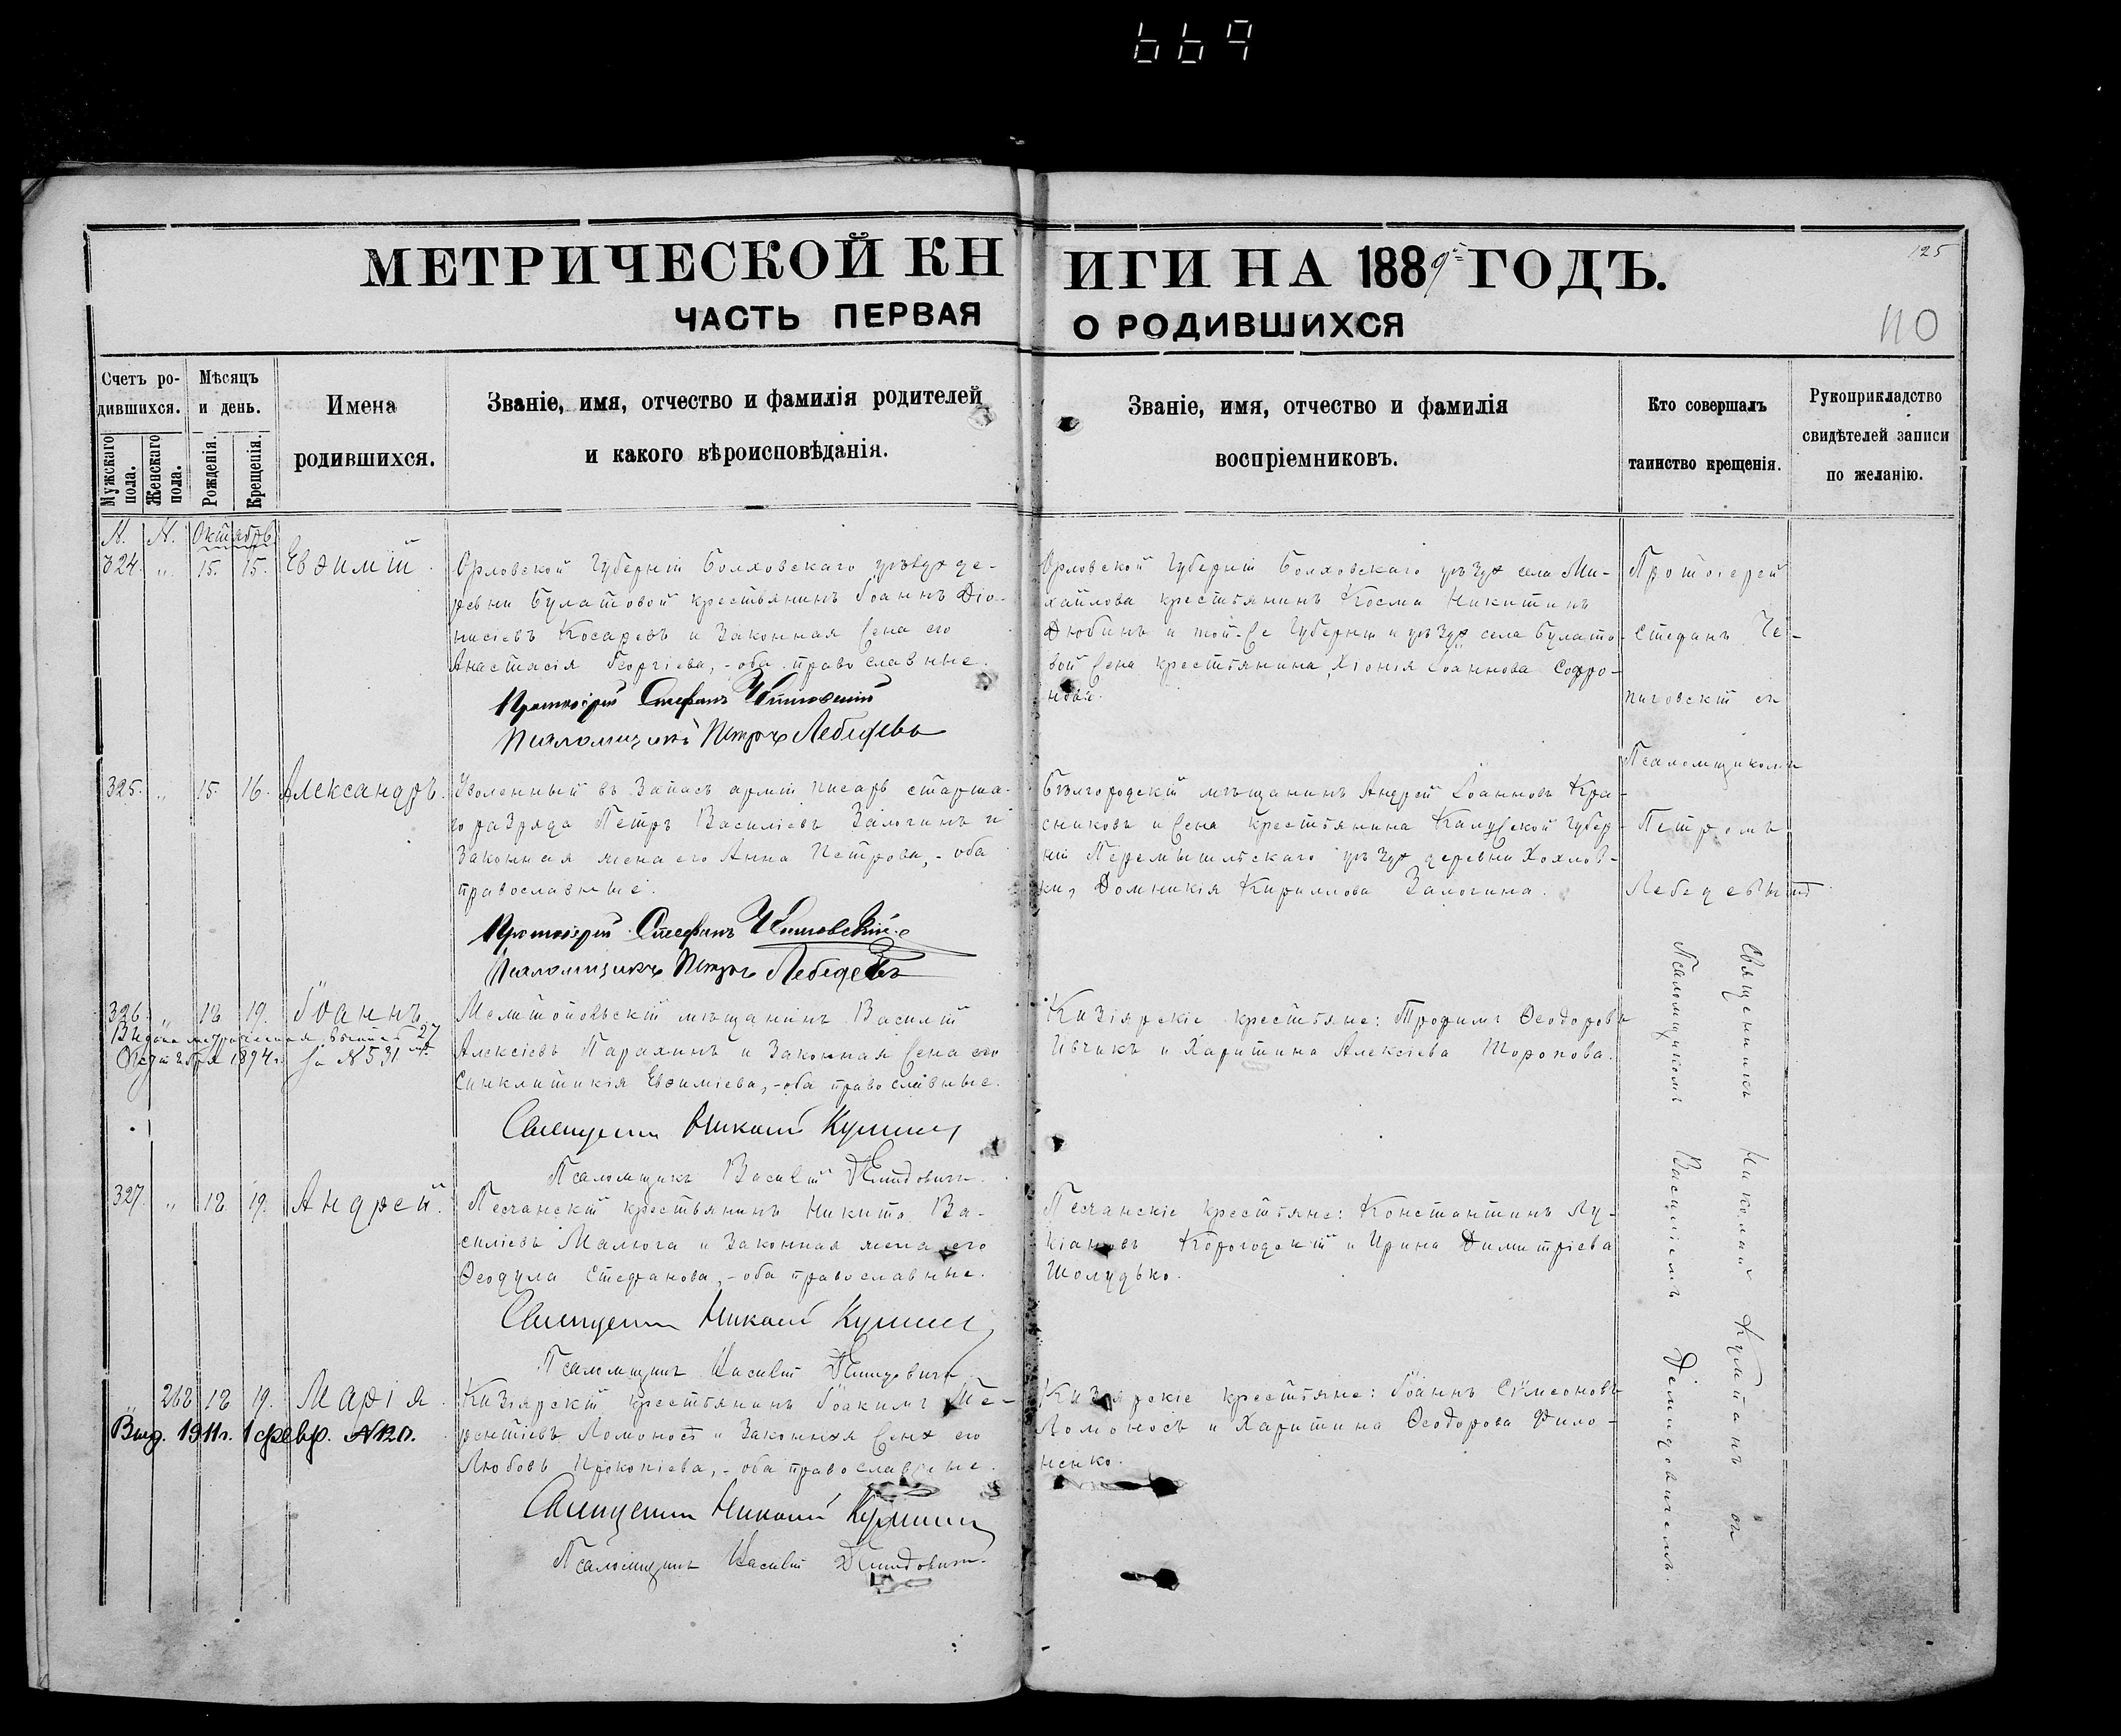 669
МЕТРИЧЕСКОЙ КНИГИ НА 1889й ГОДЪ.
125
ЧАСТЬ ПЕРВАЯ О РОДИВШИХСЯ
110
Счетъ родившихся.
Мужскаго пола.
Женскаго пола.
Мѣсяцъ и день.
Рожденія.
Крещенія.
Имена родившихся.
Званіе, имя, отчество и фамилія родителей
и какого вѣроисповѣданія.
Званіе, имя, отчество и фамилія
воспріемниковъ.
Кто совершалъ
таинство крещенія.
Рукоприкладство
свидѣтелей записи
по желанію.
№. №. Октябрь
324. „ 15. 15. Евѳимій.
Орловской Губерніи Болховскаго уѣзда де-
ревни Булатовой крестьянинъ Іоаннъ Діо-
нисіевъ Косаревъ и законная жена его
Анастасія Георгіева, - оба православные.
Протоіерей Стефанъ
Псаломщикъ Петръ Лебедевъ
Орловской Губерніи Болховскаго уѣзда села Ми-
хайлова крестьянинъ Косма Никитинъ
Дюбинъ и той-же Губерніи и уѣзда села Булато-
вой жена крестьянина, Хіонія Іоаннова Софро-
нова.
Протоіерей
Стефанъ Че-
пиговскій съ
Псаломщикомъ
Петромъ
Лебедевымъ
325. „ 15. 16. Александръ.
Уволенный въ Запасъ арміи писарь старша-
го разряда Петръ Василіевъ Залогинъ и
Законная жена его Анна Петрова, - оба
православные.
Протоіерей Стефанъ
Псаломщикъ Петръ Лебедевъ
Бѣлгородскій мѣщанинъ Андрей Іоанновъ Кра-
сниковъ и жена крестьянина Калужской Губер-
ніи Перемышльскаго уѣзда деревни Хохлов-
ки, Домникія Кириллова Залогина.
326. „ 18. 19. Іоаннъ.
Выдана метрическая выпись 27
Октября 1894 г. за № 531
Мелитопольскій мѣщанинъ Василій
Алексіевъ Парахинъ и Законная жена его
Синклитикія Евѳиміева, - оба православные.
Священникъ Николай
Псаломщикъ Василій Демидовичъ.
Кизіярскіе крестьяне: Трофимъ Ѳеодоровъ
Ивчикъ и Харитина Алексіева Шоропова.
Священникъ Николай Култанъ съ
Псаломщикомъ Василіемъ Демидовичемъ.
327. „ 18. 19. Андрей.
Песчанскій крестьянинъ Никита Ва-
силіевъ Малюга и Законная жена его
Ѳеодула Стефанова, - оба православные.
Священникъ Николай
Псаломщикъ Василій Демидовичъ
Песчанскіе крестьяне: Константинъ Лу-
кіановъ Корогодскій и Ирина Димитріева
Шолудько.
„ 262 18 19. Марія.
Выд. 1911 г. 1 февр. №120.
Кизіярскій крестьянинъ Іоакимъ Те-
рентіевъ Ломоносъ и Законная жена его
Любовь Прокопіева, - оба православные.
Священникъ Николай
Псаломщикъ Василій Демидовичъ.
Кизіярскіе крестьяне: Іоаннъ Сѵмеоновъ
Ломоносъ и Харитина Ѳеодорова Фило-
ненко.